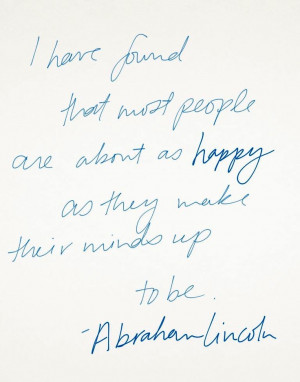 I have found
that most people
are about as happy
as they make
their minds up
to be.
-Abraham Lincoln